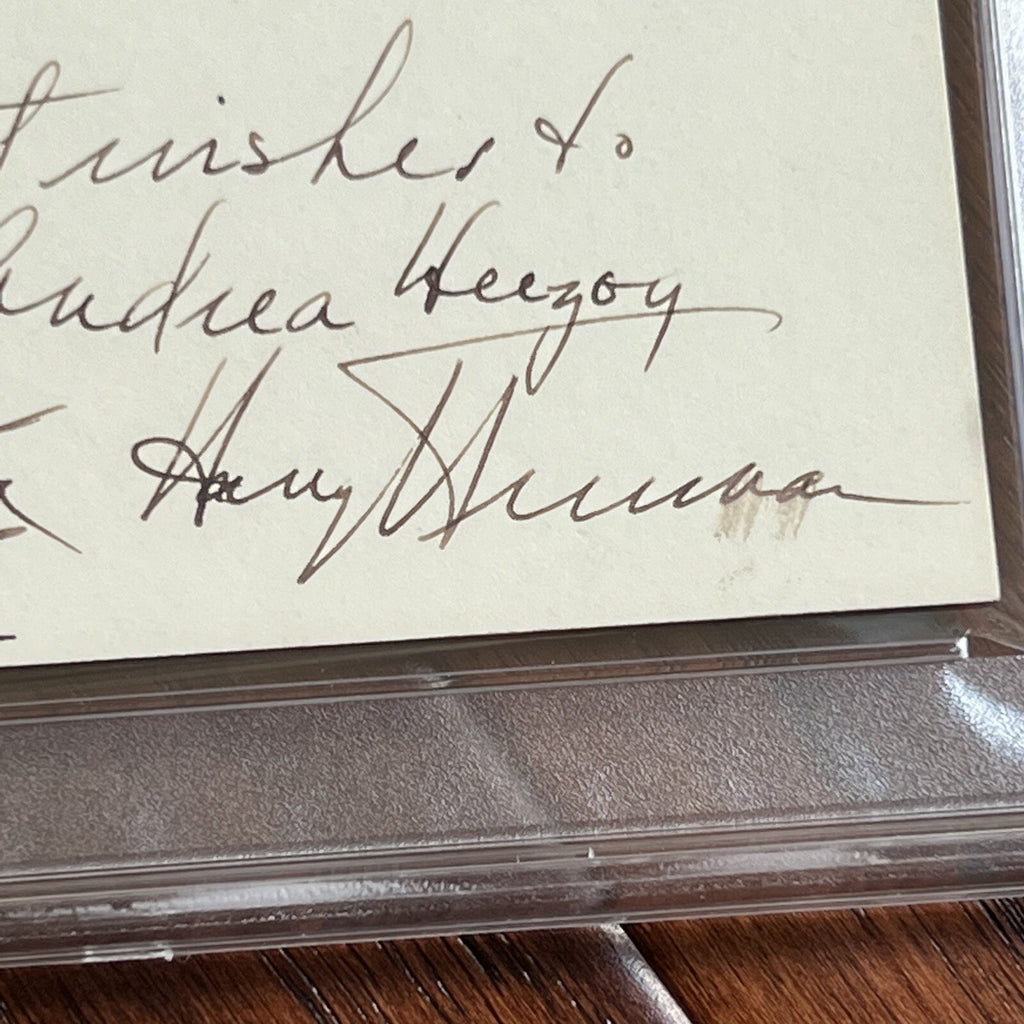 t wishes to
Andrea Herzog
Harry Truman